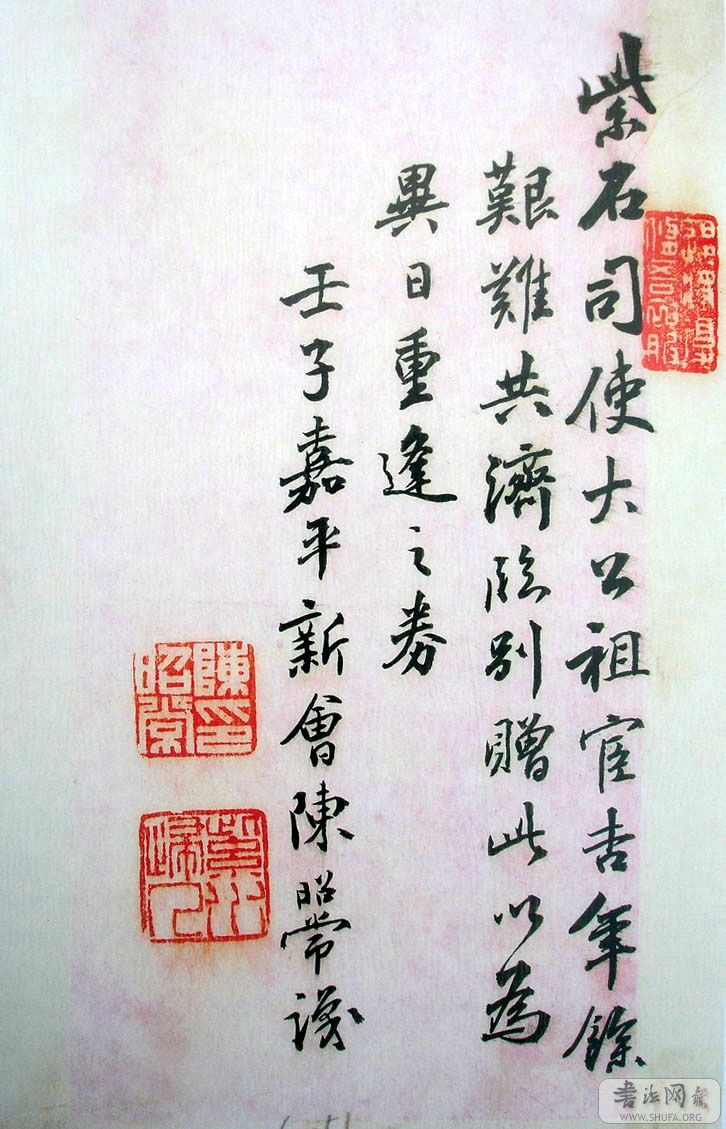 紫石司使大公祖宦吉年餘
艱難共濟臨別贈此以為
異日重逢之券
壬子嘉平新會陳昭常識
陳昭常印
書法网
WWW.SHUFA.ORG